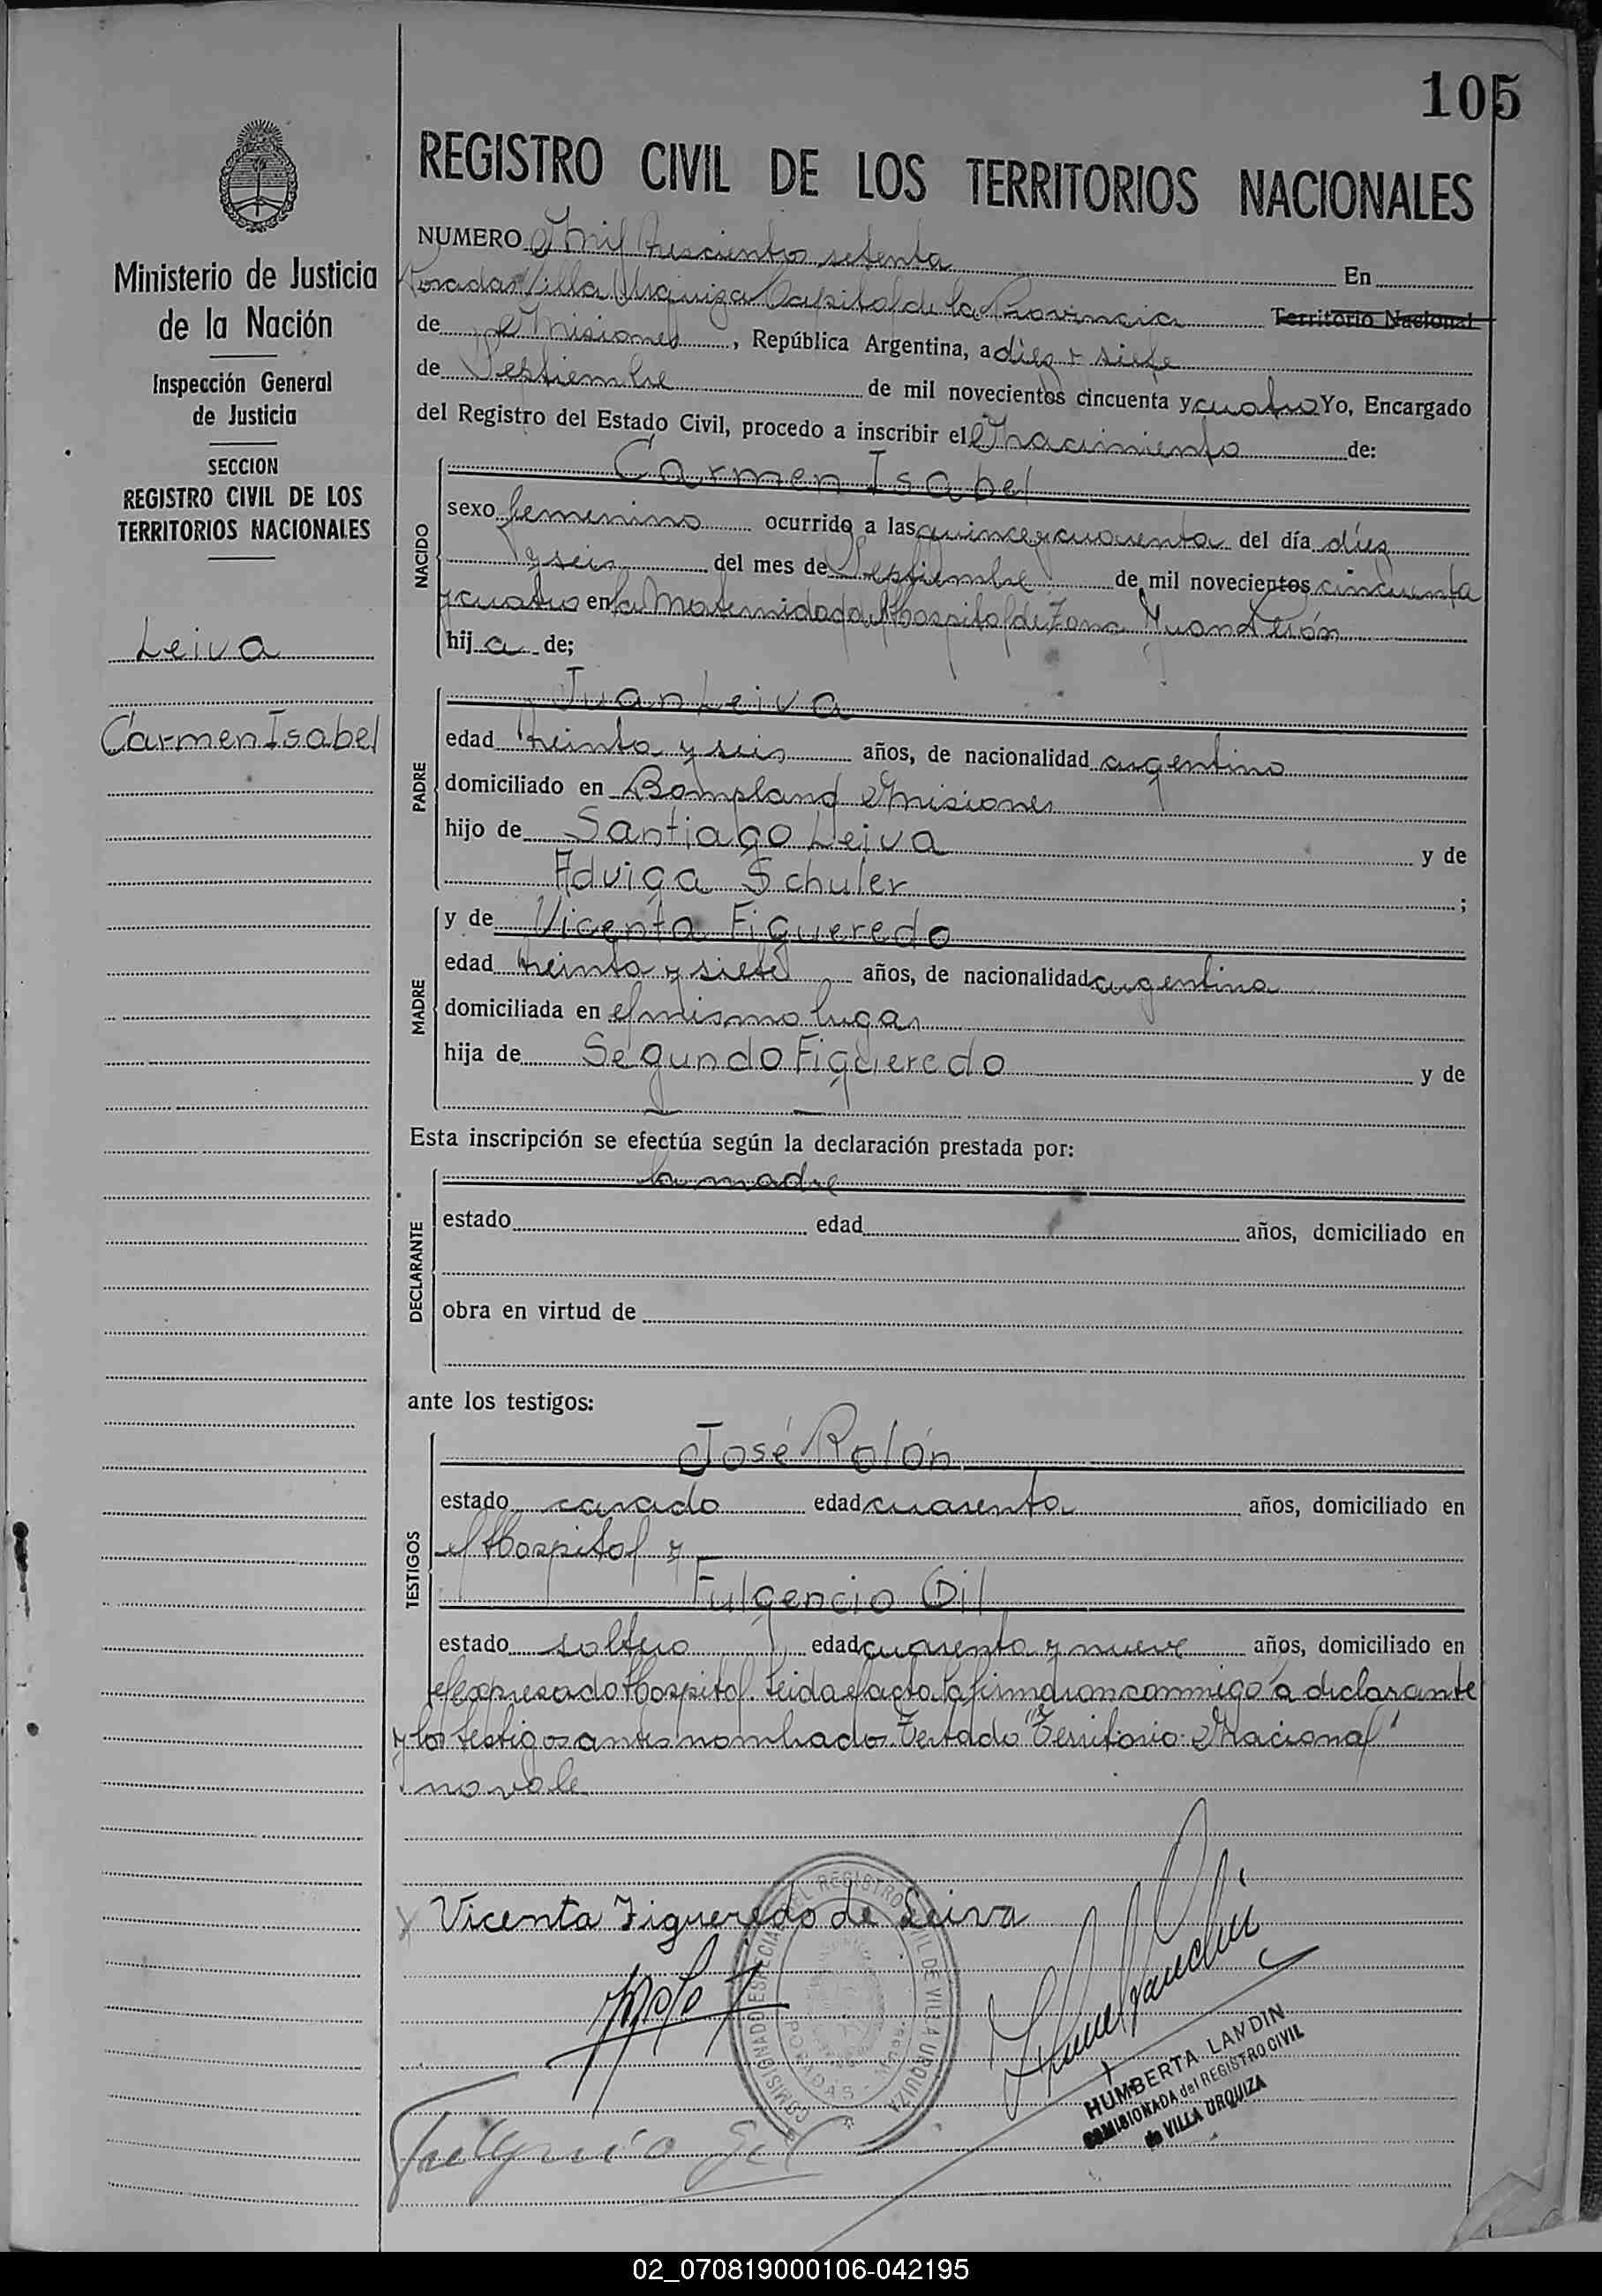 105
REGISTRO CIVIL DE LOS TERRITORIOS NACIONALES
Ministerio de Justicia
de la Nación
Inspección General
de Justicia
SECCION
REGISTRO CIVIL DE LOS
TERRITORIOS NACIONALES
Leiva
Carmen Isabel
NUMERO Mil trescientos setenta En
Posadas Villa Urquiza Capital de la Provincia Territorio Nacional
de Misiones, República Argentina, a diez y siete
de Septiembre de mil novecientos cincuenta y cuatro Yo, Encargado
del Registro del Estado Civil, procedo a inscribir el Nacimiento de:
NACIDO
Carmen Isabel
sexo femenino ocurrido a las quince y cuarenta del día diez
y seis del mes de Septiembre de mil novecientos cincuenta
y cuatro en la Maternidad del Hospital de Zona Juan Perón
hija de;
PADRE
Juan Leiva
edad treinta y seis años, de nacionalidad argentino
domiciliado en Bompland Misiones
hijo de Santiago Leiva y de
Aduiga Schuler ;
MADRE
y de Vicenta Figueredo
edad treinta y siete años, de nacionalidad argentina
domiciliada en el mismo lugar
hija de Segundo Figueredo y de
Esta inscripción se efectúa según la declaración prestada por:
DECLARANTE
la madre
estado edad años, domiciliado en
obra en virtud de
ante los testigos:
TESTIGOS
José Rolón
estado casado edad cuarenta años, domiciliado en
el Hospital y
Fulgencio Gil
estado soltero edad cuarenta y nueve años, domiciliado en
el expresado Hospital. Leida el acta la firmaron conmigo la declarante
y los testigos antes nombrados. Testado "Territorio Nacional"
no vale
Vicenta Figueredo de Leiva
COMISIONADO ESPECIAL DEL REGISTRO CIVIL DE VILLA URQUIZA
POSADAS
Fulgencio Gil
HUMBERTA LANDIN
COMISIONADA del REGISTRO CIVIL
de VILLA URQUIZA
02_070819000106-042195